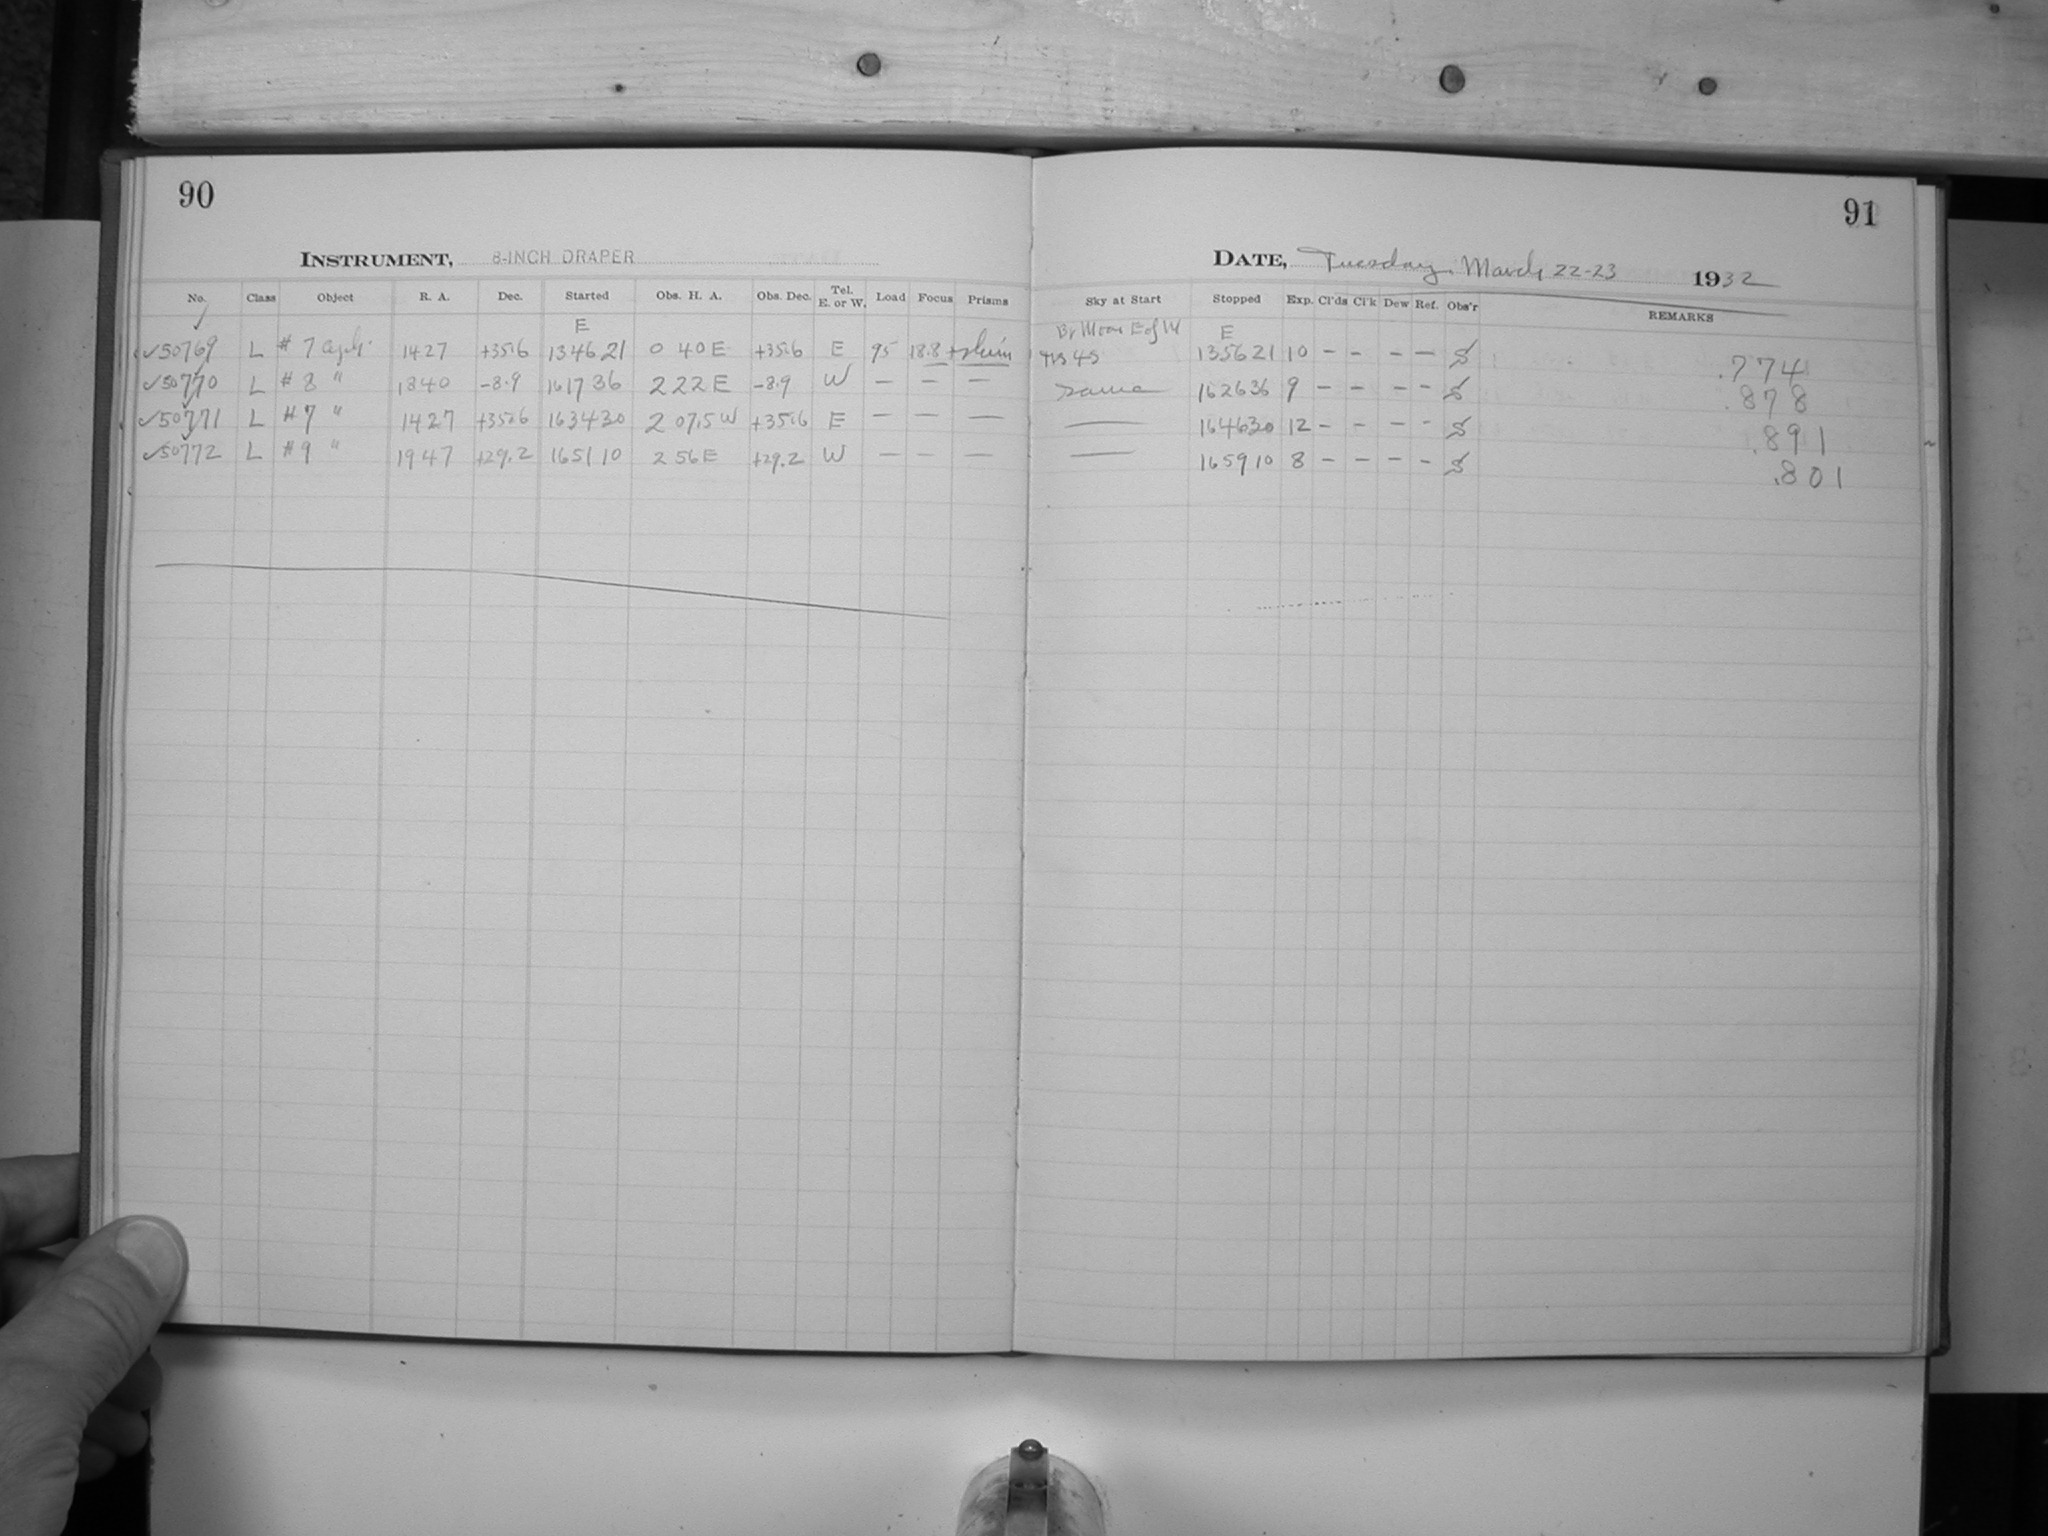 90
INSTRUMENT, 8-INCH DRAPER
No. Class Object R. A. Dec. Started Obs. H. A. Obs. Dec. Tel. E. or W. Load Focus Prisms
E
✓50769 L # 7 1427 +35.6 134621 0 40 E +35.6 E 95 18.8
✓50770 L # 8 " 1340 -8.9 161736 2 22 E -8.9 W — — —
✓50771 L # 7 " 1427 +35.6 163430 2 07.5 W +35.6 E — — —
✓50772 L # 9 " 1947 +29.2 165110 2 56 E +29.2 W — — —
91
DATE, Tuesday, March 22-23 1932
Sky at Start Stopped Exp. Cl'ds Cl'k Dew Ref. Obs'r REMARKS
Br Moon E of M E
135621 10 – – – – S .774
same 162636 9 – – – – S .878
— 164630 12 – – – – S .891
— 165910 8 – – – – S .801